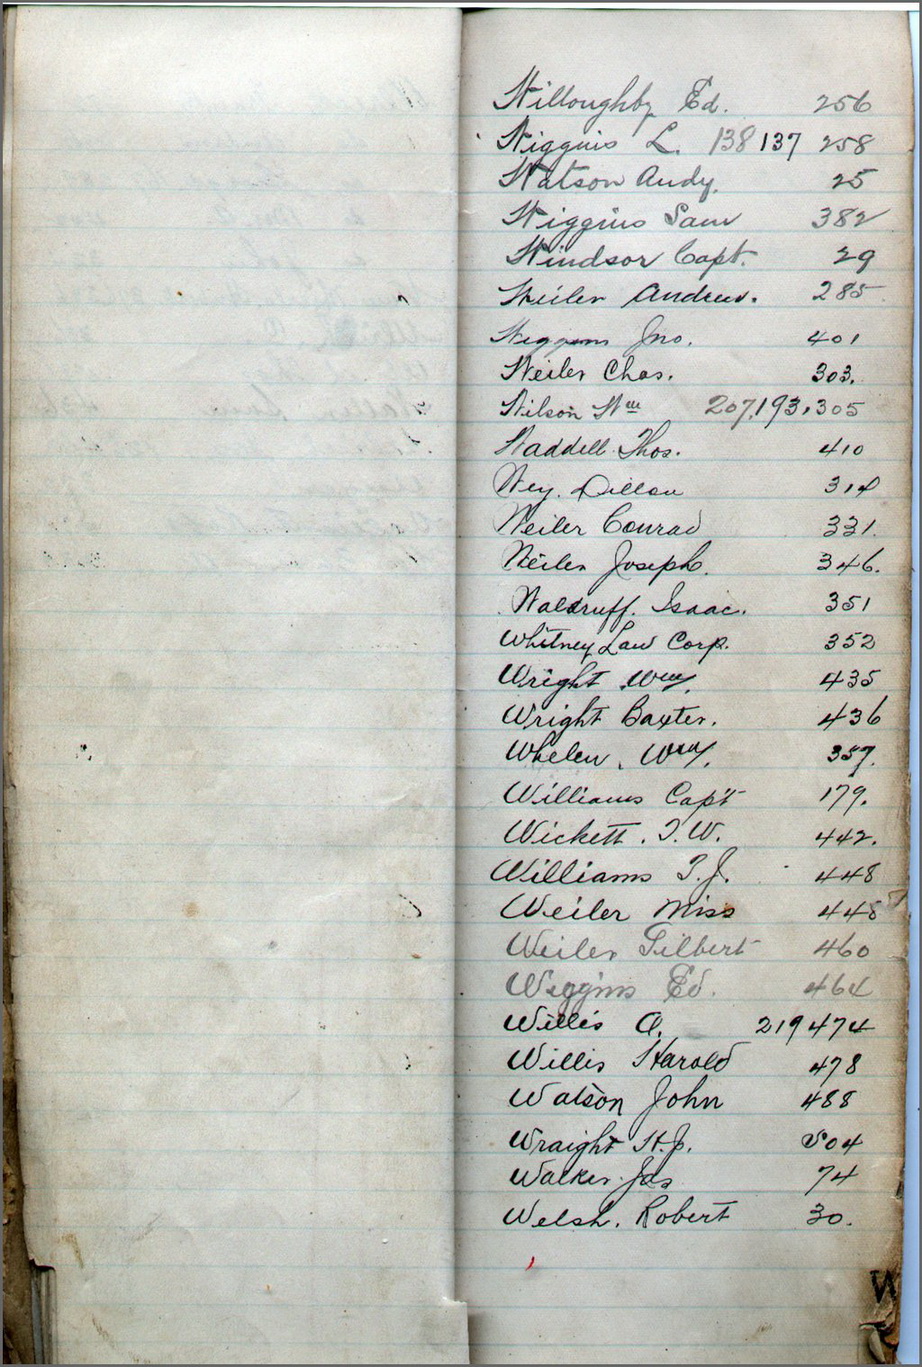 Willoughby Ed. 256
Wiggins L. 138 137 258
Watson Andy. 25
Wiggins Sam 382
Windsor Capt. 29
Weiler Andrew. 285
Wiggins Jno. 401
Weiler Chas. 303.
Wilson Wm 207,193,305
Waddell Thos. 410
Wey. Dillon 314
Weiler Conrad 331.
Weiler Joseph. 346.
Waldruff. Isaac. 351
Whitney Law Corp. 352
Wright Wm. 435
Wright Baxter. 436
Whelen, Wm. 357.
Williams Capt 179.
Wickett. T.W. 442.
Williams T.J. 448
Weiler Miss 448
Weiler Gilbert 460
Wiggins Ed. 464
Willis A. 219 474
Willis Harold 478
Watson John 488
Wraight H.J. 504
Walker Jas 74
Welsh. Robert 30.
W